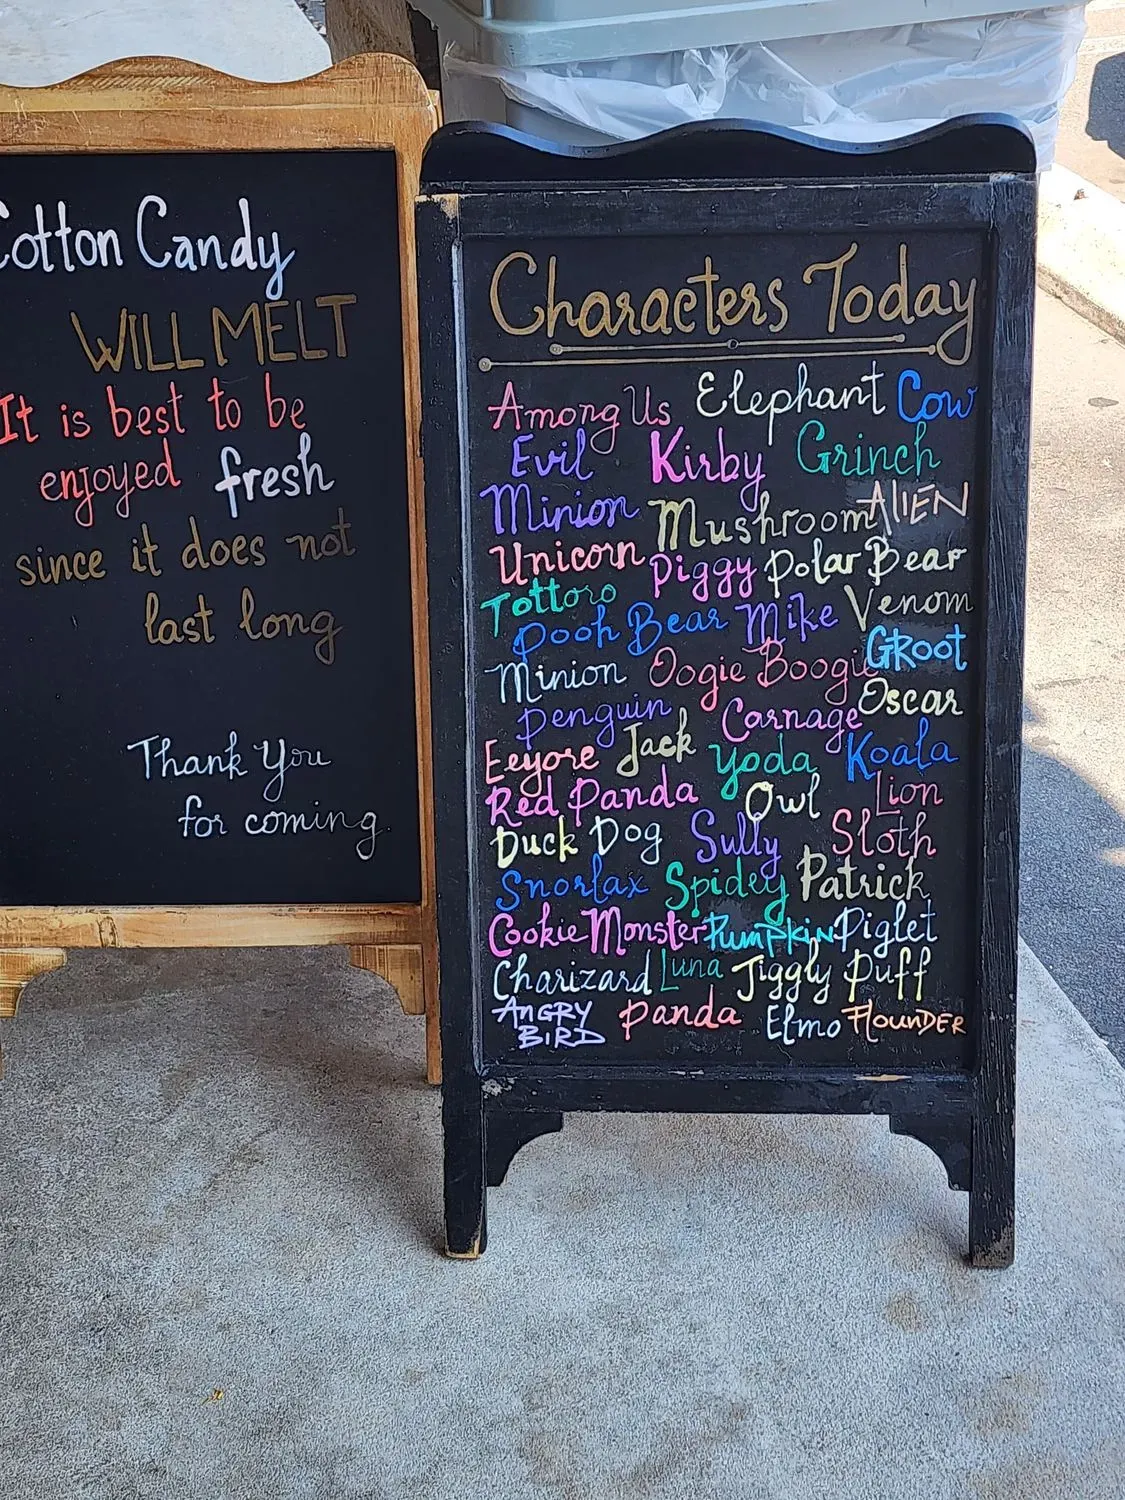 Cotton Candy
WILL MELT
It is best to be
enjoyed fresh
since it does not
last long
Thank You
for coming
Characters Today
Among Us Elephant Cow
Evil Kirby Grinch
Minion Mushroom AlIEN
Unicorn Piggy Polar Bear
Tottoro Pooh Bear Mike Venom
Minion Oogie Boogie GRoot
Penguin Carnage Oscar
Eeyore Jack Yoda Koala
Red Panda Owl Lion
Duck Dog Sully Sloth
Snorlax Spidey Patrick
Cookie Monster PumPkiN Piglet
Charizard Luna Jiggly Puff
ANGRY
BIRD Panda Elmo FlounDER